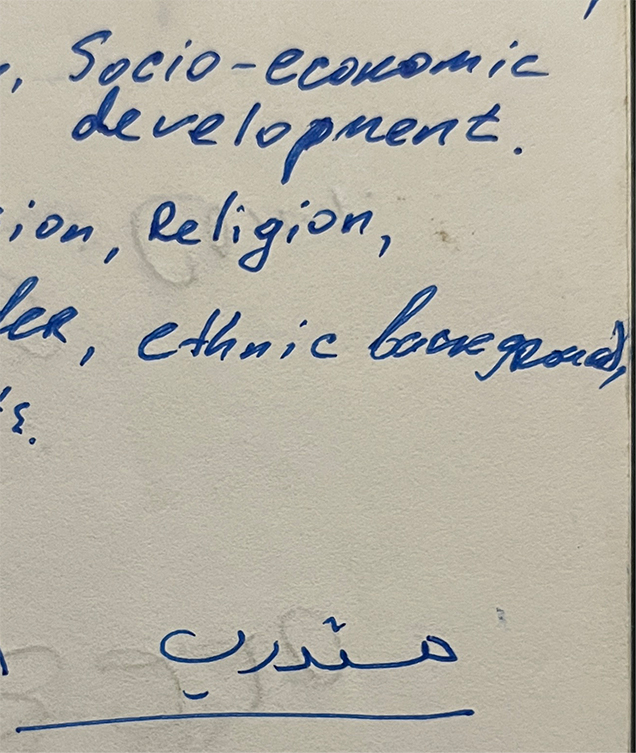 , Socio-economic
development.
ion, Religion,
der, ethnic background,
ts.